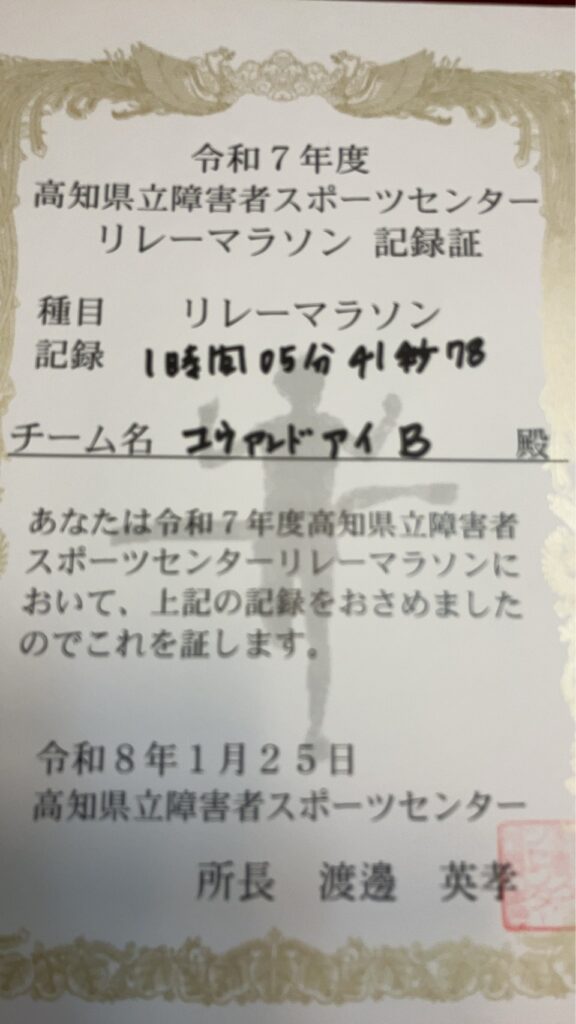 令和７年度
高知県立障害者スポーツセンター
リレーマラソン 記録証
種目 リレーマラソン
記録 1時間05分41秒78
チーム名 アイ B 殿
あなたは令和７年度高知県立障害者
スポーツセンターリレーマラソンに
おいて、上記の記録をおさめました
のでこれを証します。
令和８年１月２５日
高知県立障害者スポーツセンター
所長 渡邊 英孝